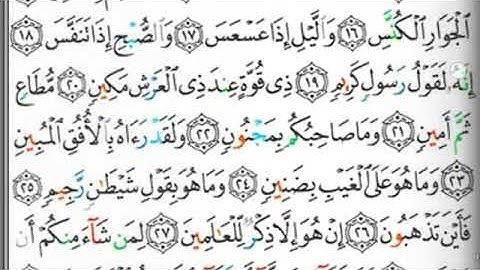 ٱلْجَوَارِ ٱلْكُنَّسِ ١٦ وَٱلَّيْلِ إِذَا عَسْعَسَ ١٧ وَٱلصُّبْحِ إِذَا تَنَفَّسَ ١٨
إِنَّهُۥ لَقَوْلُ رَسُولٍ كَرِيمٍ ١٩ ذِى قُوَّةٍ عِندَ ذِى ٱلْعَرْشِ مَكِينٍ ٢٠ مُّطَاعٍ
ثَمَّ أَمِينٍ ٢١ وَمَا صَاحِبُكُم بِمَجْنُونٍ ٢٢ وَلَقَدْ رَءَاهُ بِٱلْأُفُقِ ٱلْمُبِينِ
٢٣ وَمَا هُوَ عَلَى ٱلْغَيْبِ بِضَنِينٍ ٢٤ وَمَا هُوَ بِقَوْلِ شَيْطَٰنٍ رَّجِيمٍ ٢٥
فَأَيْنَ تَذْهَبُونَ ٢٦ إِنْ هُوَ إِلَّا ذِكْرٌ لِّلْعَٰلَمِينَ ٢٧ لِمَن شَآءَ مِنكُمْ أَن